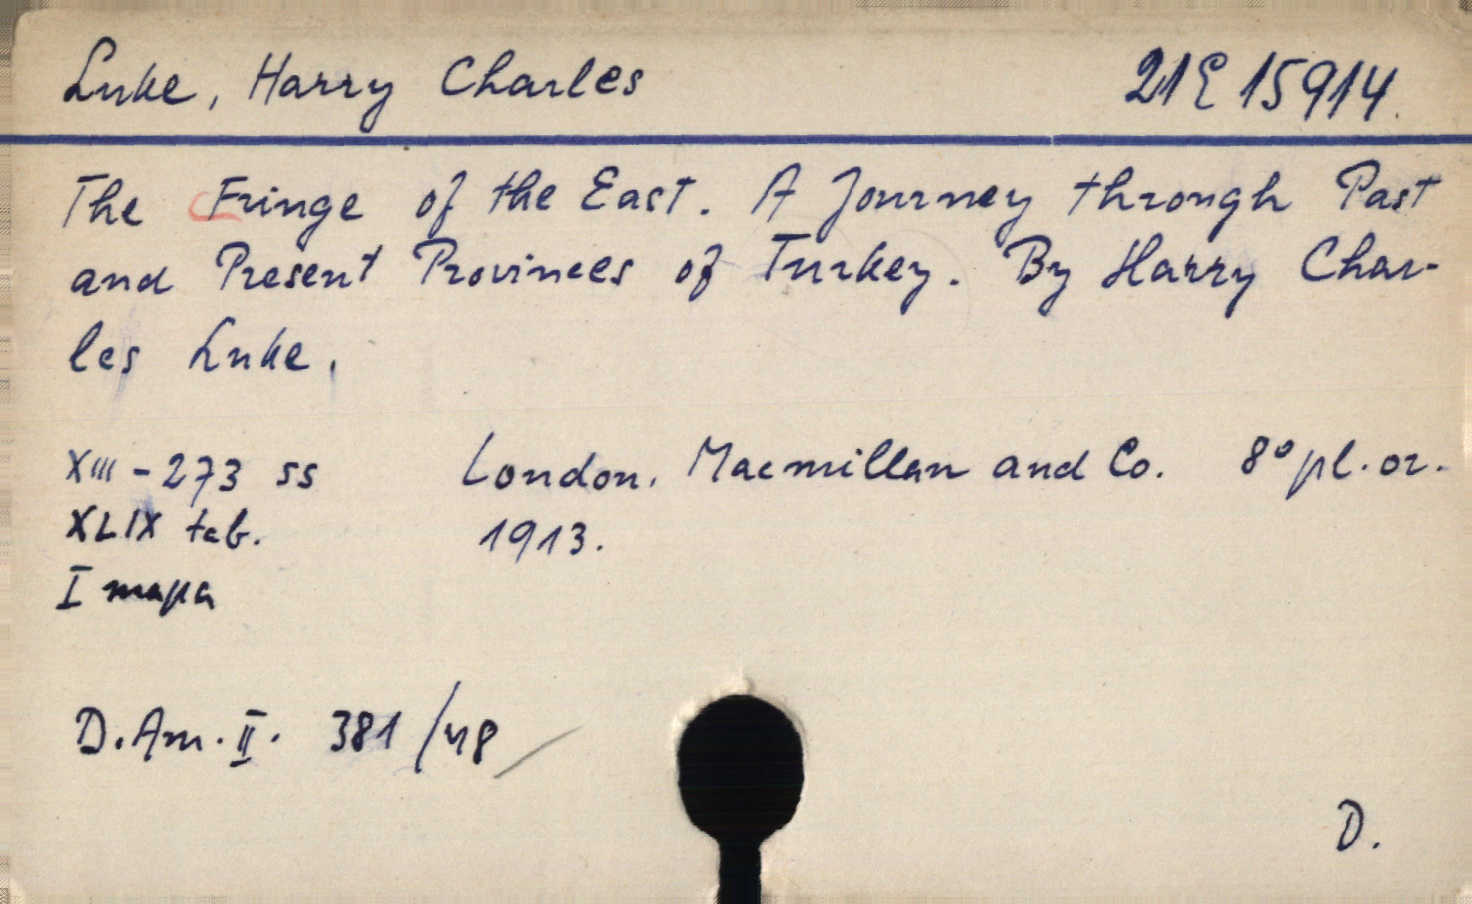 Luke, Harry Charles 21E 15914.
The Fringe of the East. A Journey through Past
and Present Provinces of Turkey. By Harry Char-
les Luke.
XIII - 273 ss London. Macmillan and Co. 8° pł. or.
XLIX tab. 1913.
I mapa
D. Am. II. 381/48
D.